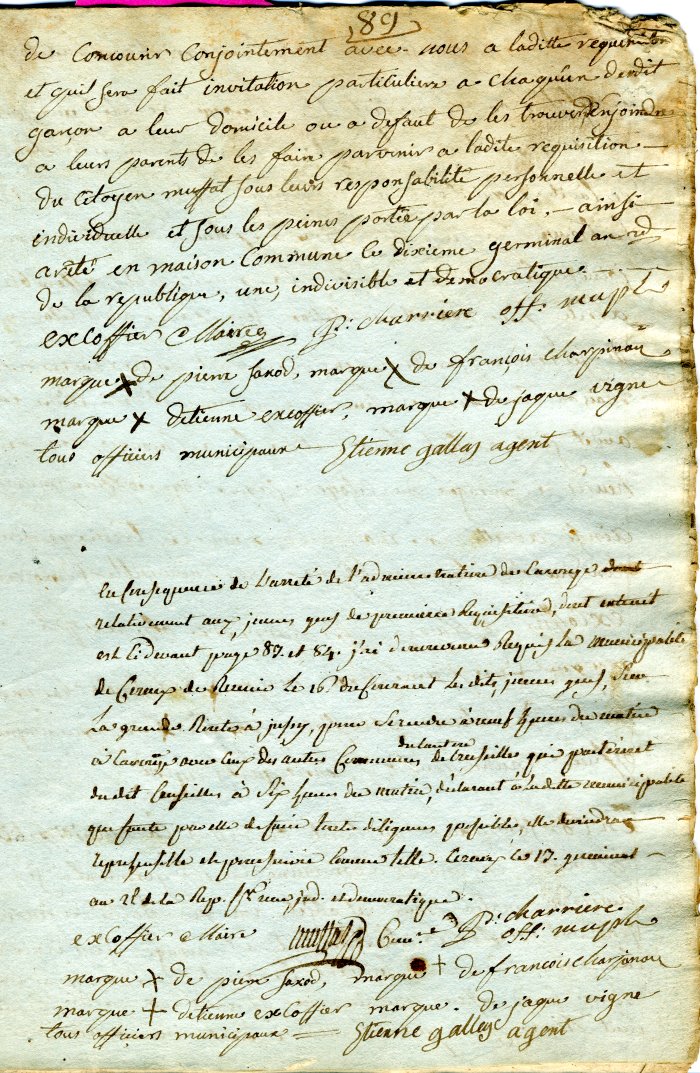 89
de Concourir Conjointement avec nous a laditte requisition
et quil sera fait invitation particuliere a chaqu'un desdit
garçon a leur domicile ou a defaut de les trouver Enjoindre
a leurs parents de les faire parvenir a ladite requisition
du Citoyen muffat sous leurs responsabilité personnelle et
individuelle et sous les peines portée par la loi, ainsi
arêté en maison Commune le dixieme germinal an 2d
de la republique, une, indivisible et democratique
excoffier Maire P: charriere off: mupl
marque x de pierre saxod, marque x de françois charpinau
marque x detienne excoffier, marque x de jaque vigne
tous officiers municipaux Etienne gallay agent
En Consequence de l'arreté de l'administration de Carouge
relativement aux jeunes gens de premiere Requisition, dont extrait
est Cidevant page 83. et 84. j'ai denouveau Requis la municipalité
de Cereux de Reunir le 16 du Courant les dits jeunes gens,
la grande Route à jussy, pour Serendre à neuf heures du matin
à Carouge avec Ceux des autres Communes du Canton de Cruseilles qui partiront
dudit Cruseilles à Six heures du matin, déclarant à ladite municipalité
que faute par elle defaire toutes diligences possibles, elle deviendra
responsable et poursuivie Comme telle. Cereux le 13. germinal
au 2d de la Rep. fse une ind. et democratique.
excoffier Maire muffat P: charriere
off: mupl
marque x de pierre saxod, marque + de francois charpinau
marque + detienne excoffier marque. de jaque vigne
tous officiers municipaux Etienne gallay agent